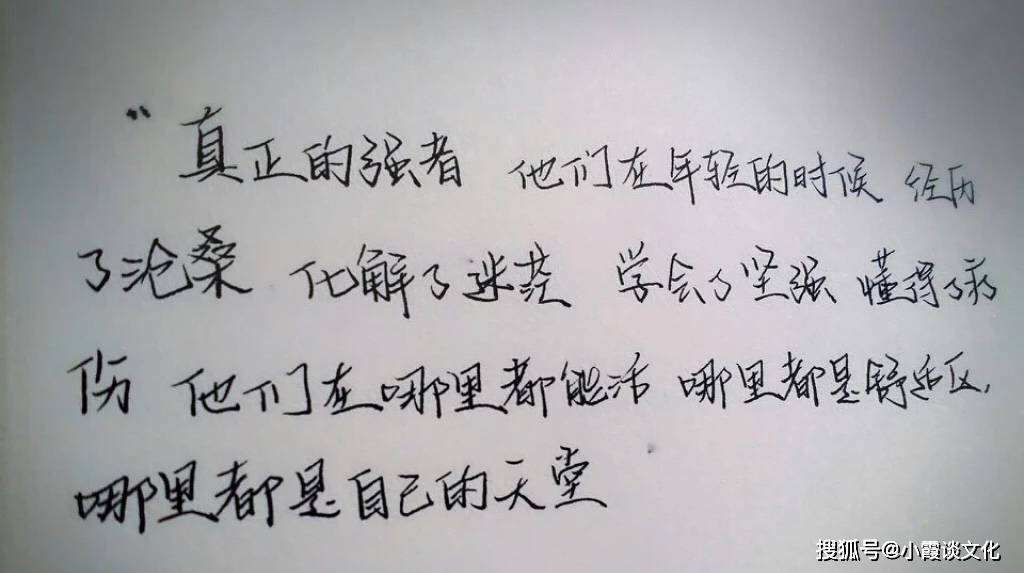 “真正的强者 他们在年轻的时候 经历
了沧桑 化解了迷茫 学会了坚强 懂得了疗
伤 他们在哪里都能活 哪里都是舒适区,
哪里都是自己的天堂
搜狐号@小霞谈文化